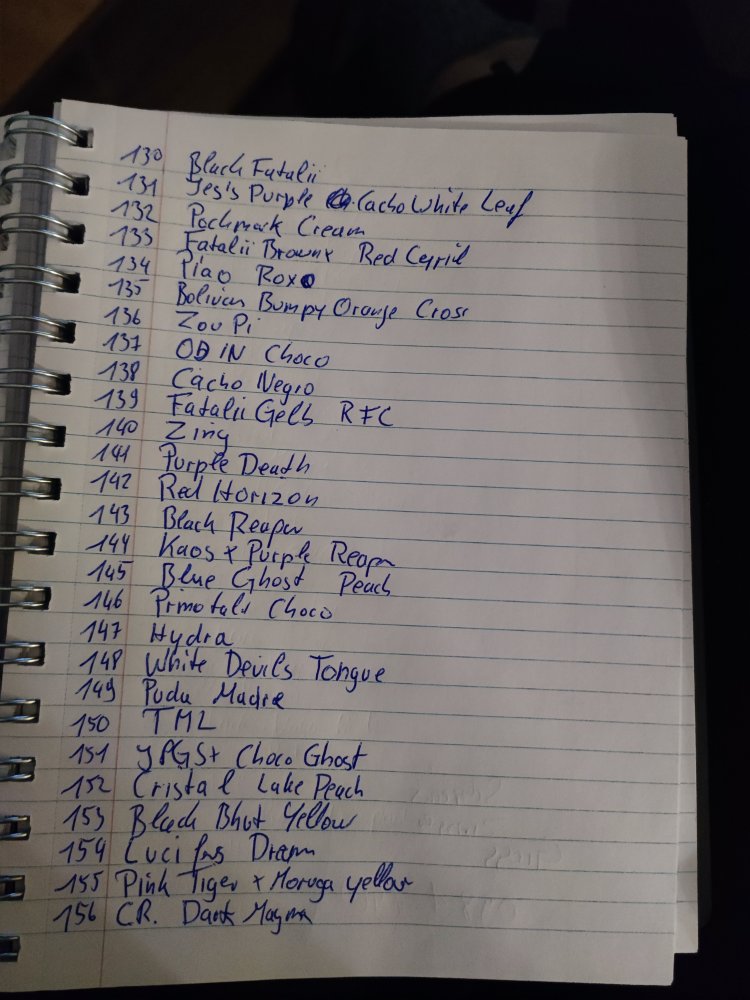 130 Black Fatalii
131 Jes's Purple Cacho White Leaf
132 Pockmark Cream
133 Fatalii Brown x Red Ceyril
134 Piao Roxo
135 Bolivian Bumpy Orange Cross
136 Zou Pi
137 ODIN Choco
138 Cacho Negro
139 Fatalii Gelb RFC
140 Zing
141 Purple Death
142 Red Horizon
143 Black Reaper
144 Kaos x Purple Reaper
145 Blue Ghost Peach
146 Primotalii Choco
147 Hydra
148 White Devils Tongue
149 Pudu Madre
150 TML
151 JPGS x Choco Ghost
152 Cristal Lake Peach
153 Black Bhut Yellow
154 Lucifers Dream
155 Pink Tiger x Moruga yellow
156 C.R. Dark Magma